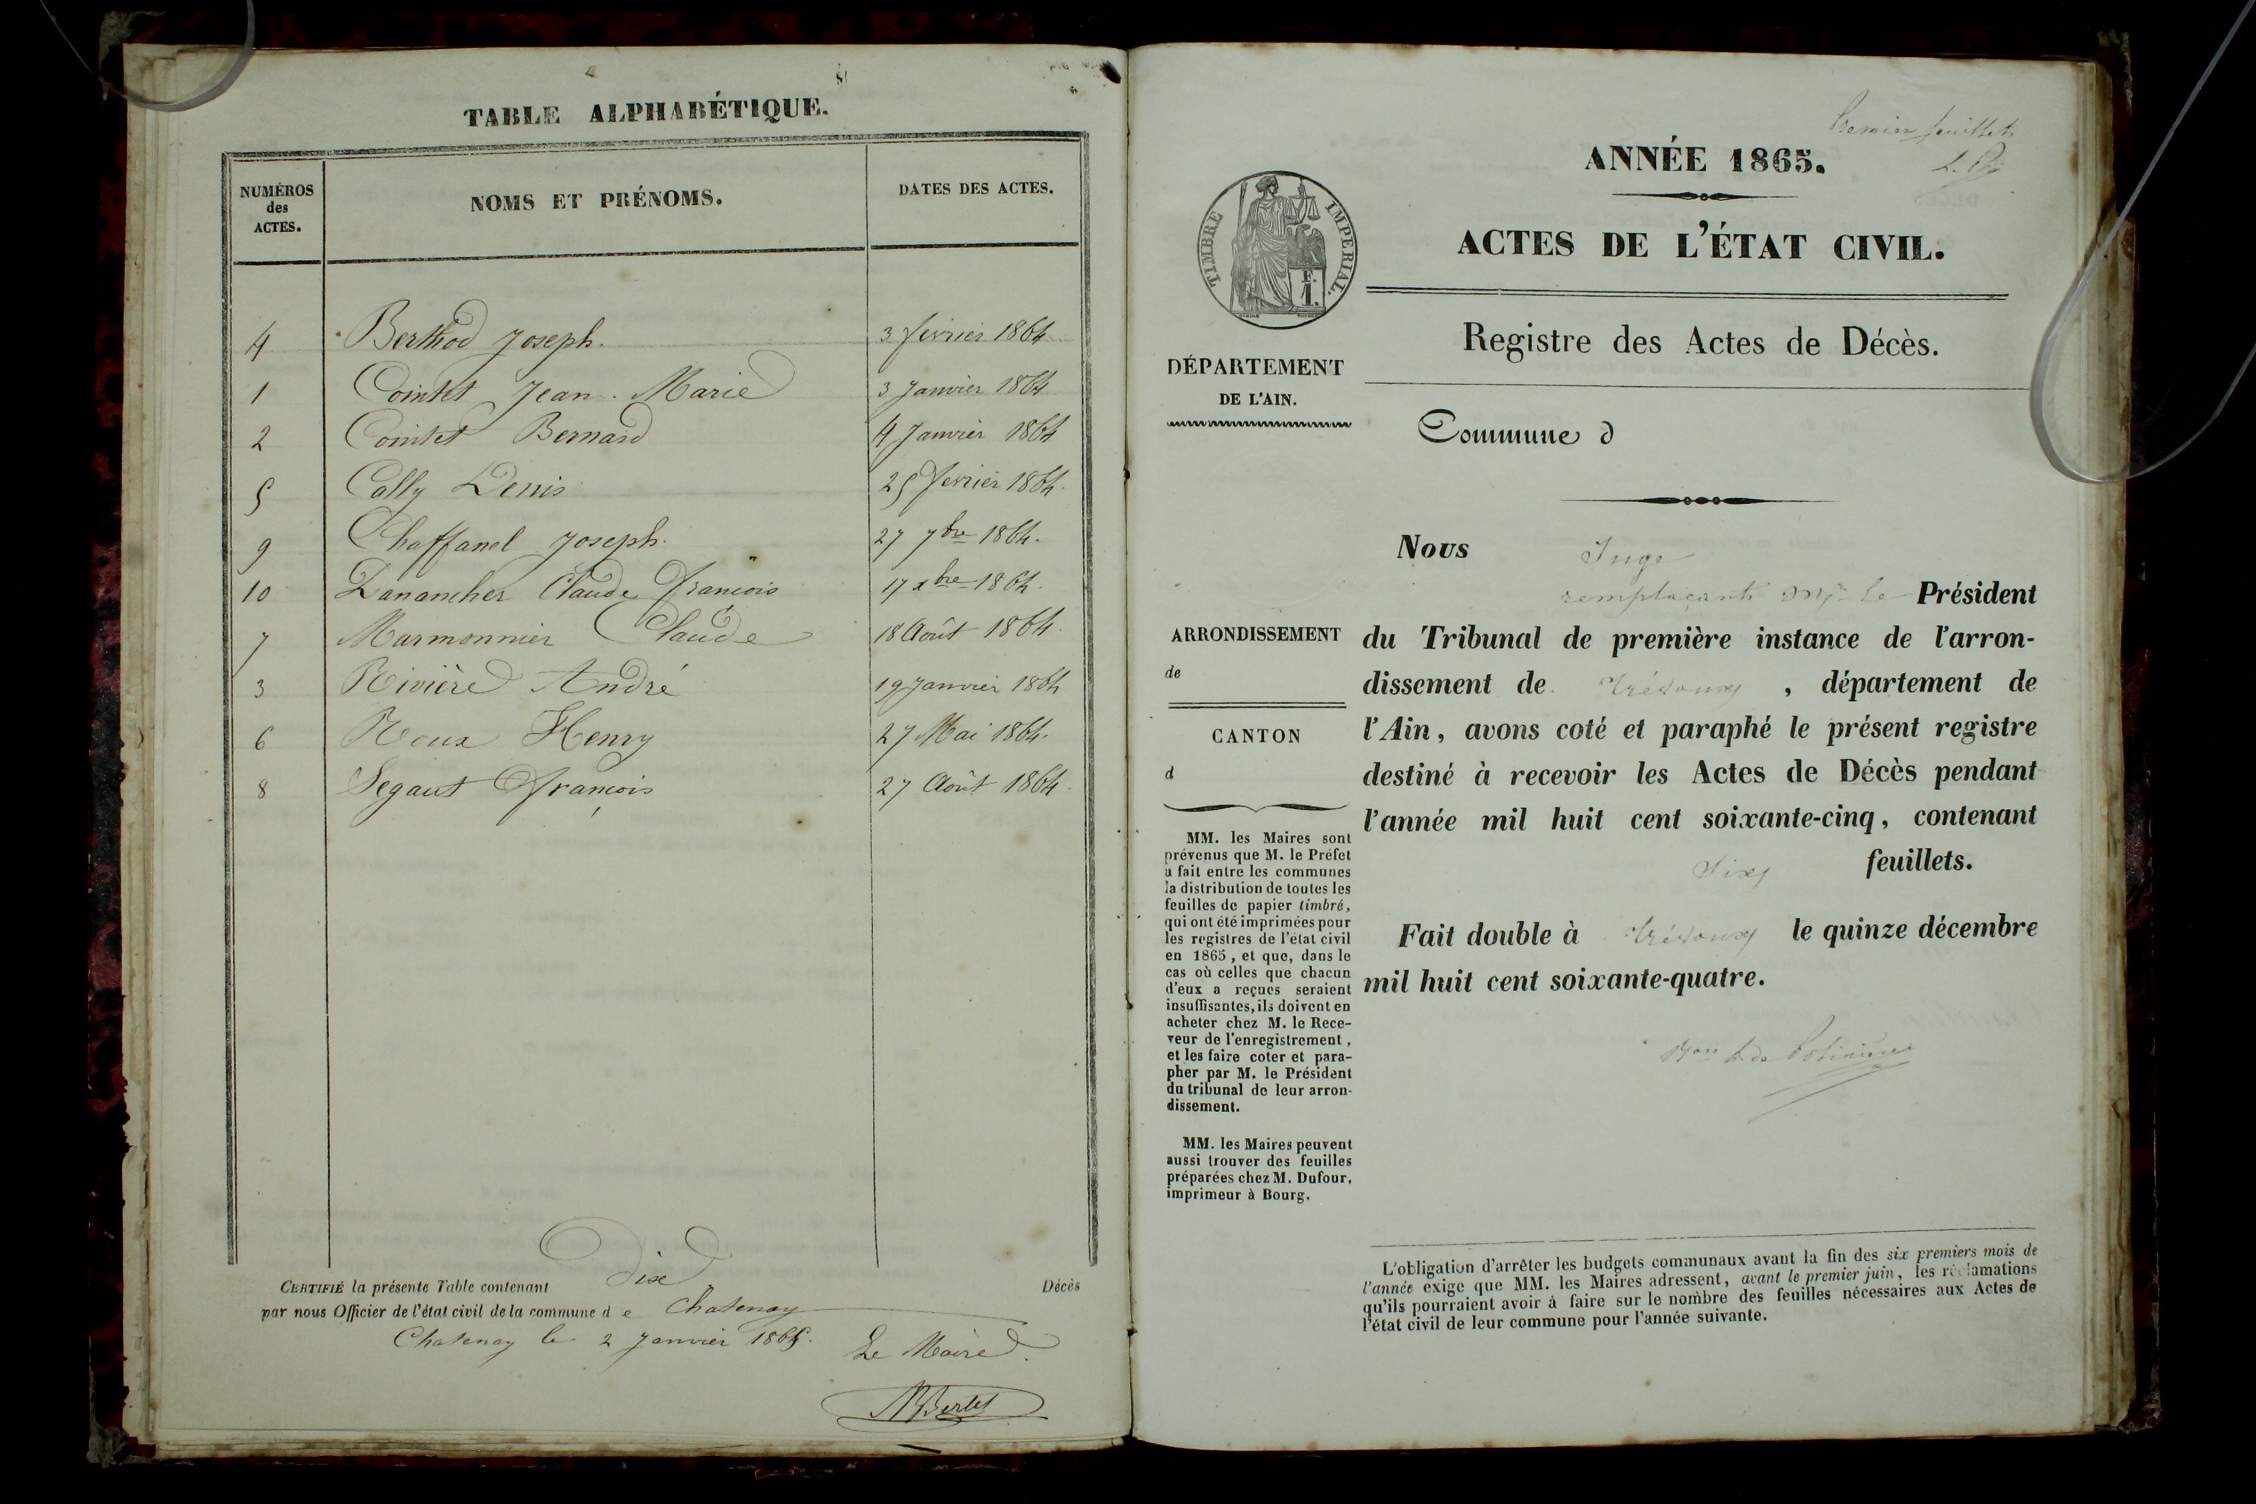 TABLE ALPHABÉTIQUE.
NUMÉROS des ACTES.
NOMS ET PRÉNOMS.
DATES DES ACTES.
4 Berthod Joseph. 3 février 1864
1 Cointet Jean. Marie 3 Janvier 1864
2 Cointet Bernard 4 Janvier 1864
5 Colly Denis 25 février 1864.
9 Chaffanel Joseph. 27 7bre 1864.
10 Danancher Claude François 17 xbre 1864.
7 Marmonnier Claude 18 Août 1864.
3 Rivière André 19 Janvier 1864
6 Roux Henry 27 Mai 1864.
8 Segaut François 27 Août 1864.
CERTIFIÉ la présente Table contenant Dix Décès
par nous Officier de l'état civil de la commune d e Chatenay
Chatenay le 2 Janvier 1865.
Le Maire.
Premier feuillet
ANNÉE 1865.
ACTES DE L'ÉTAT CIVIL.
TIMBRE IMPERIAL.
F.
1.
Registre des Actes de Décès.
DÉPARTEMENT
DE L'AIN.
Commune d
ARRONDISSEMENT
de
CANTON
d
MM. les Maires sont
prévenus que M. le Préfet
a fait entre les communes
la distribution de toutes les
feuilles de papier timbré,
qui ont été imprimées pour
les registres de l'état civil
en 1865, et que, dans le
cas où celles que chacun
d'eux a reçues seraient
insuffisantes, ils doivent en
acheter chez M. le Rece-
veur de l'enregistrement,
et les faire coter et para-
pher par M. le Président
du tribunal de leur arron-
dissement.
MM. les Maires peuvent
aussi trouver des feuilles
préparées chez M. Dufour,
imprimeur à Bourg.
Nous Juge
remplaçant Mr le Président
du Tribunal de première instance de l'arron-
dissement de Trévoux, département de
l'Ain, avons coté et paraphé le présent registre
destiné à recevoir les Actes de Décès pendant
l'année mil huit cent soixante-cinq, contenant
six feuillets.
Fait double à Trévoux le quinze décembre
mil huit cent soixante-quatre.
L'obligation d'arrêter les budgets communaux avant la fin des six premiers mois de
l'année exige que MM. les Maires adressent, avant le premier juin, les réclamations
qu'ils pourraient avoir à faire sur le nombre des feuilles nécessaires aux Actes de
l'état civil de leur commune pour l'année suivante.